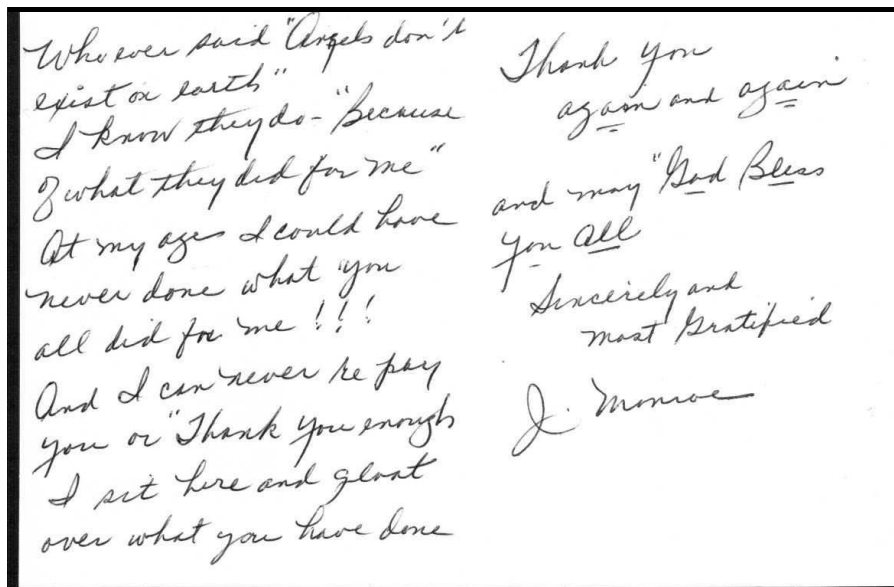 Who ever said "Angels don't
exist on earth"
I know they do - "Because
of what they did for me"
At my ages I could have
never done what you
all did for me !!!
And I can never re pay
you or "Thank You enough
I sit here and gloat
over what you have done
Thank You
again and again
and may "God Bless
You All
Sincerely and
most Gratified
J. Monroe